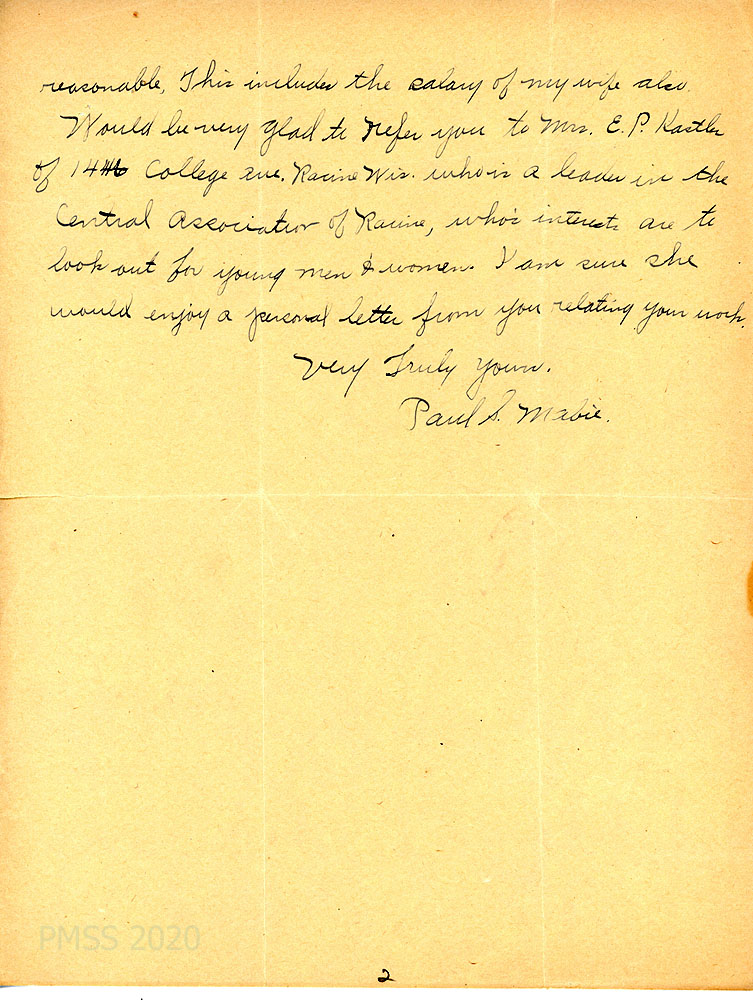 reasonable, This includes the salary of my wife also.
Would be very glad to refer you to Mrs. E. P. Kastler
of College ave. Racine Wis. who is a leader in the
Central Association of Racine, who's interests are to
look out for young men & women. I am sure she
would enjoy a personal letter from you relating your work.
Very Truly Yours.
Paul S. Mabie.
PMSS 2020
2